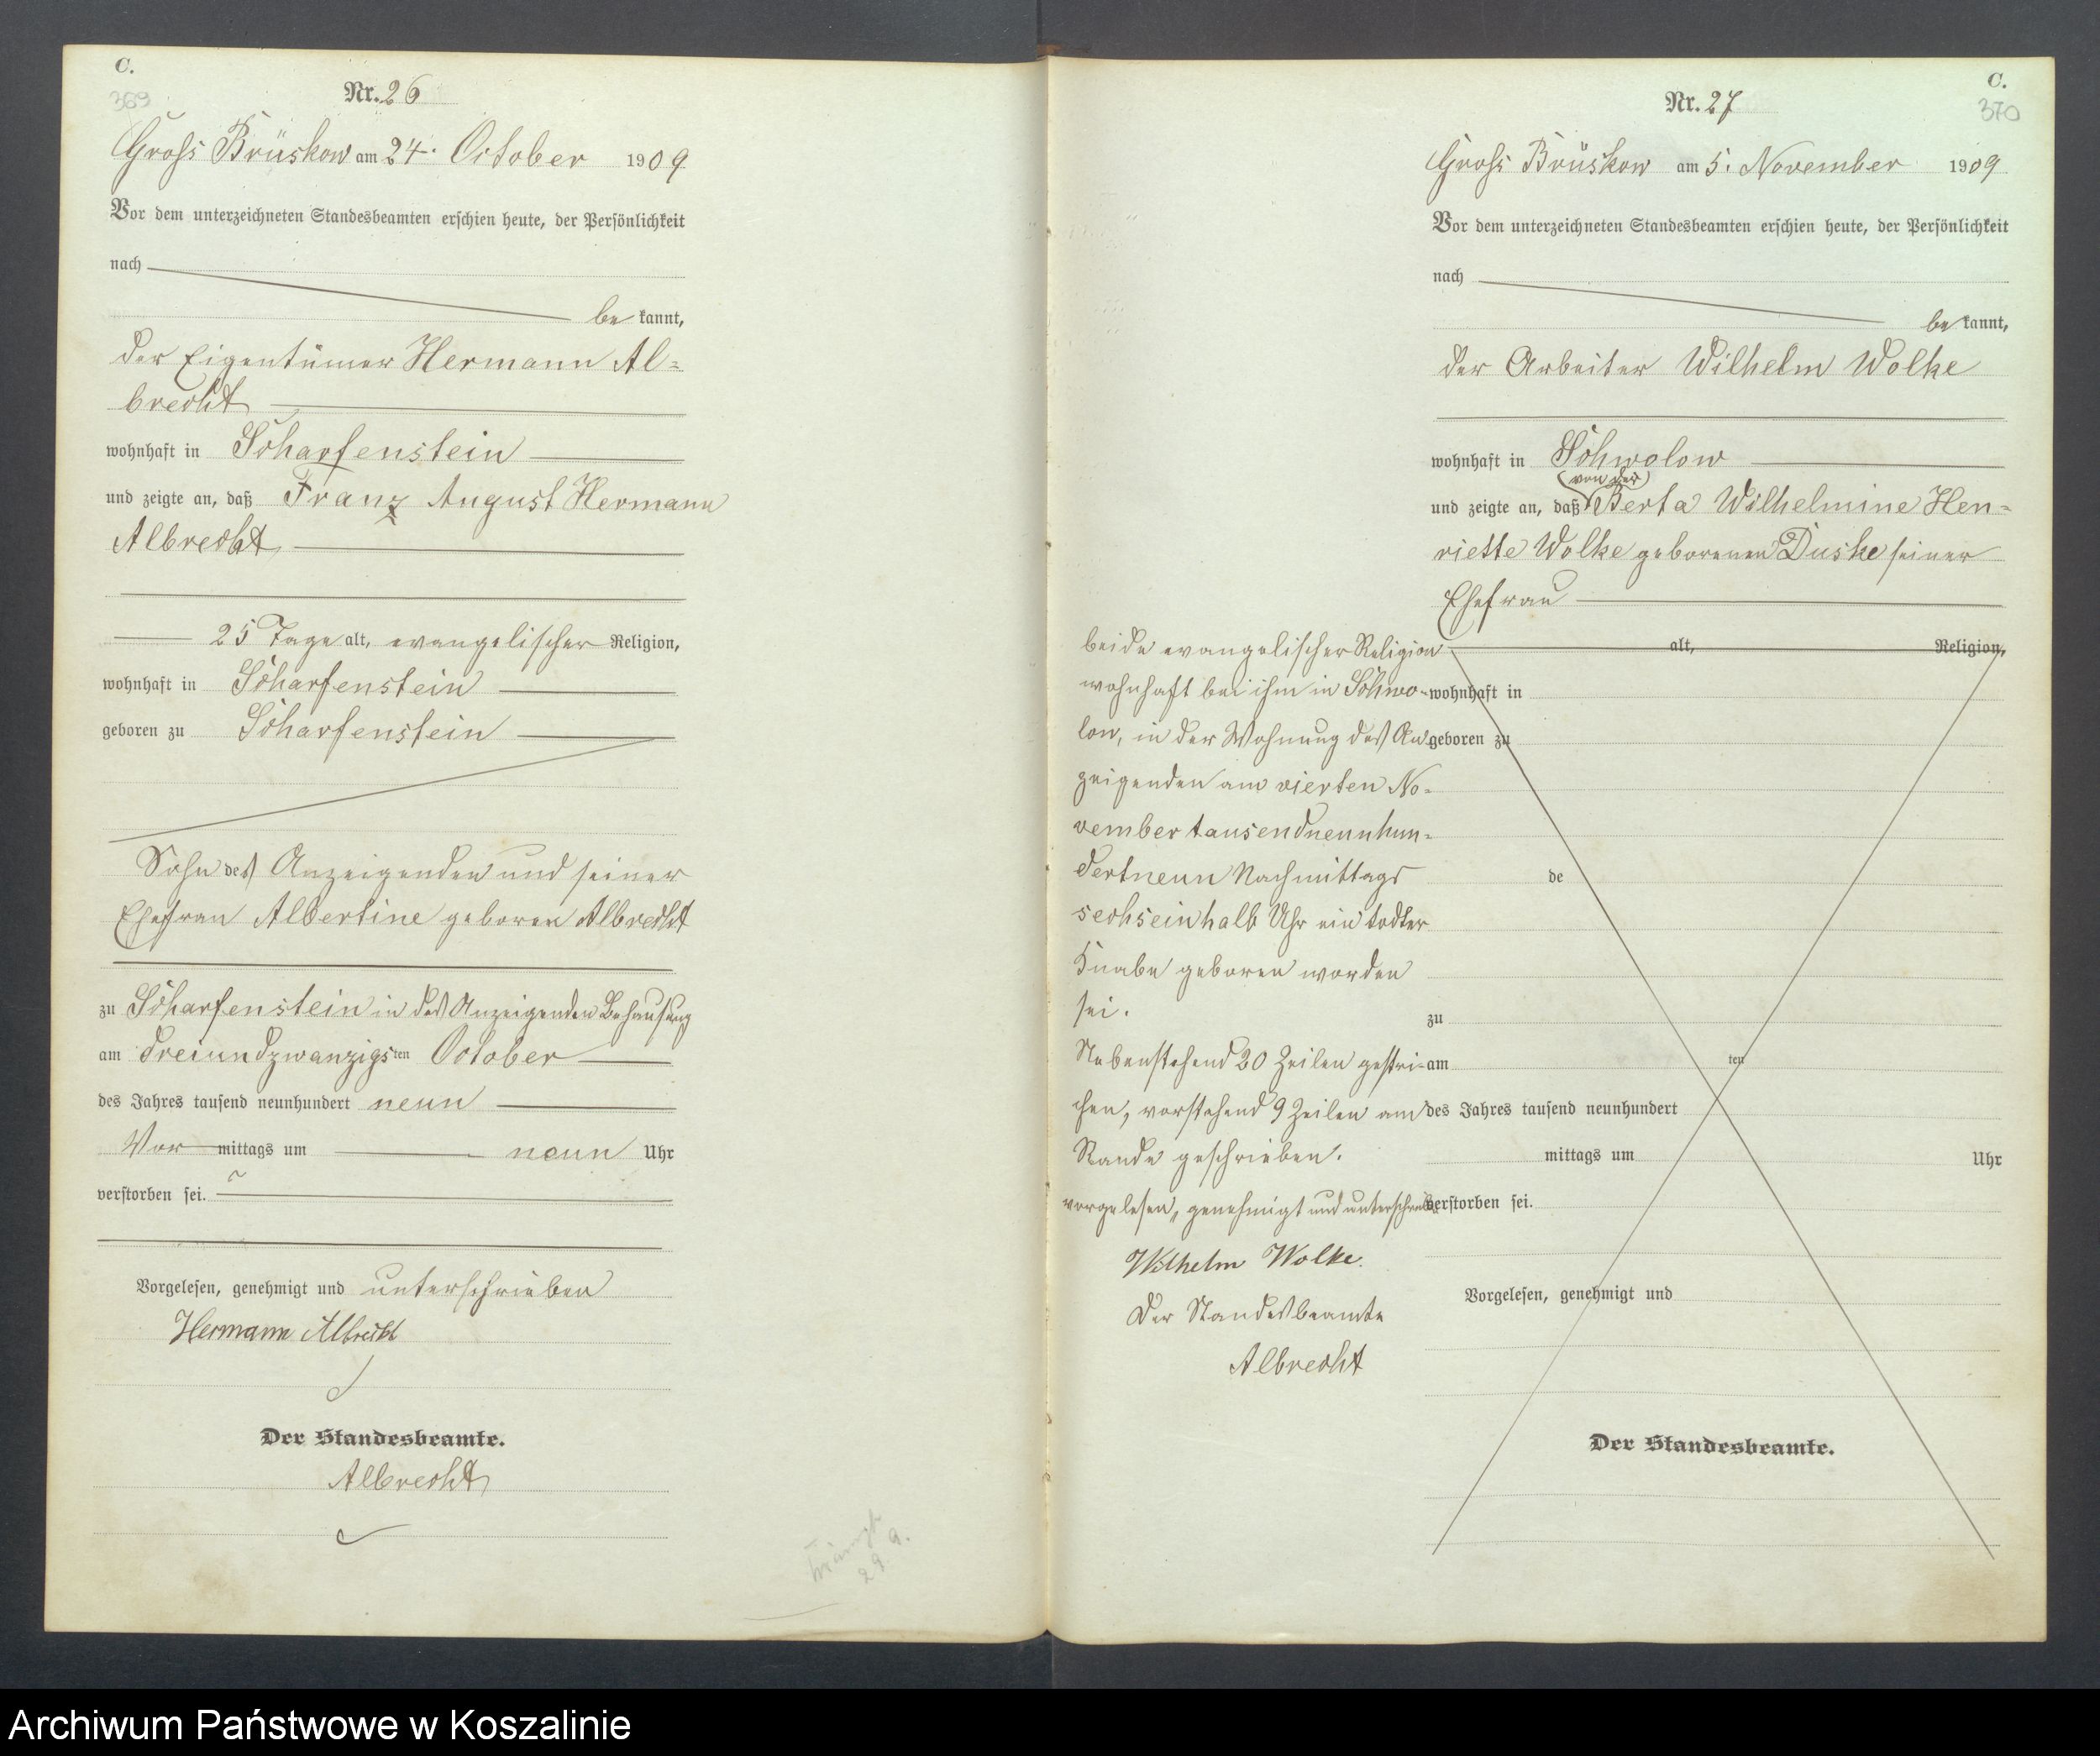 C.
369
Nr. 26
Gross Brüskow am 24. October 1909
Vor dem unterzeichneten Standesbeamten erschien heute, der Persönlichkeit
nach
be kannt,
der Eigentümer Hermann Al=
brecht
wohnhaft in Scharfenstein
und zeigte an, daß Franz August Hermann
Albrecht
25 Tage alt, evangelischer Religion,
wohnhaft in Scharfenstein
geboren zu Scharfenstein
Sohn des Anzeigenden und seiner
Ehefrau Albertine geboren Albrecht
zu Scharfenstein in des Anzeigenden Behausung
am dreiundzwanzigsten October
des Jahres tausend neunhundert neun
Vor mittags um neun Uhr
verstorben sei.
Vorgelesen, genehmigt und unterschrieben
Hermann Albrecht
Der Standesbeamte.
Albrecht
29 9.
C.
370
Nr. 27
Gross Brüskow am 5. November 1909
Vor dem unterzeichneten Standesbeamten erschien heute, der Persönlichkeit
nach
be kannt,
der Arbeiter Wilhelm Wolke
wohnhaft in Schwolow
(von der)
und zeigte an, daß Berta Wilhelmine Hen=
riette Wolke geborenen Duske seiner
Ehefrau
alt, Religion,
wohnhaft in
geboren zu
de
zu
am ten
des Jahres tausend neunhundert
mittags um Uhr
verstorben sei.
Vorgelesen, genehmigt und
Der Standesbeamte.
beide evangelischer Religion
wohnhaft bei ihm in Schwo=
low, in der Wohnung des An=
zeigenden am vierten No=
vember tausendneunhun=
dertneun Nachmittags
sechseinhalb Uhr ein todter
Knabe geboren worden
sei.
Nebenstehend 20 Zeilen gestri=
chen, vorstehend 9 Zeilen am
Rande geschrieben.
vorgelesen, genehmigt und unterschrieben
Wilhelm Wolke.
Der Standesbeamte
Albrecht
Archiwum Państwowe w Koszalinie